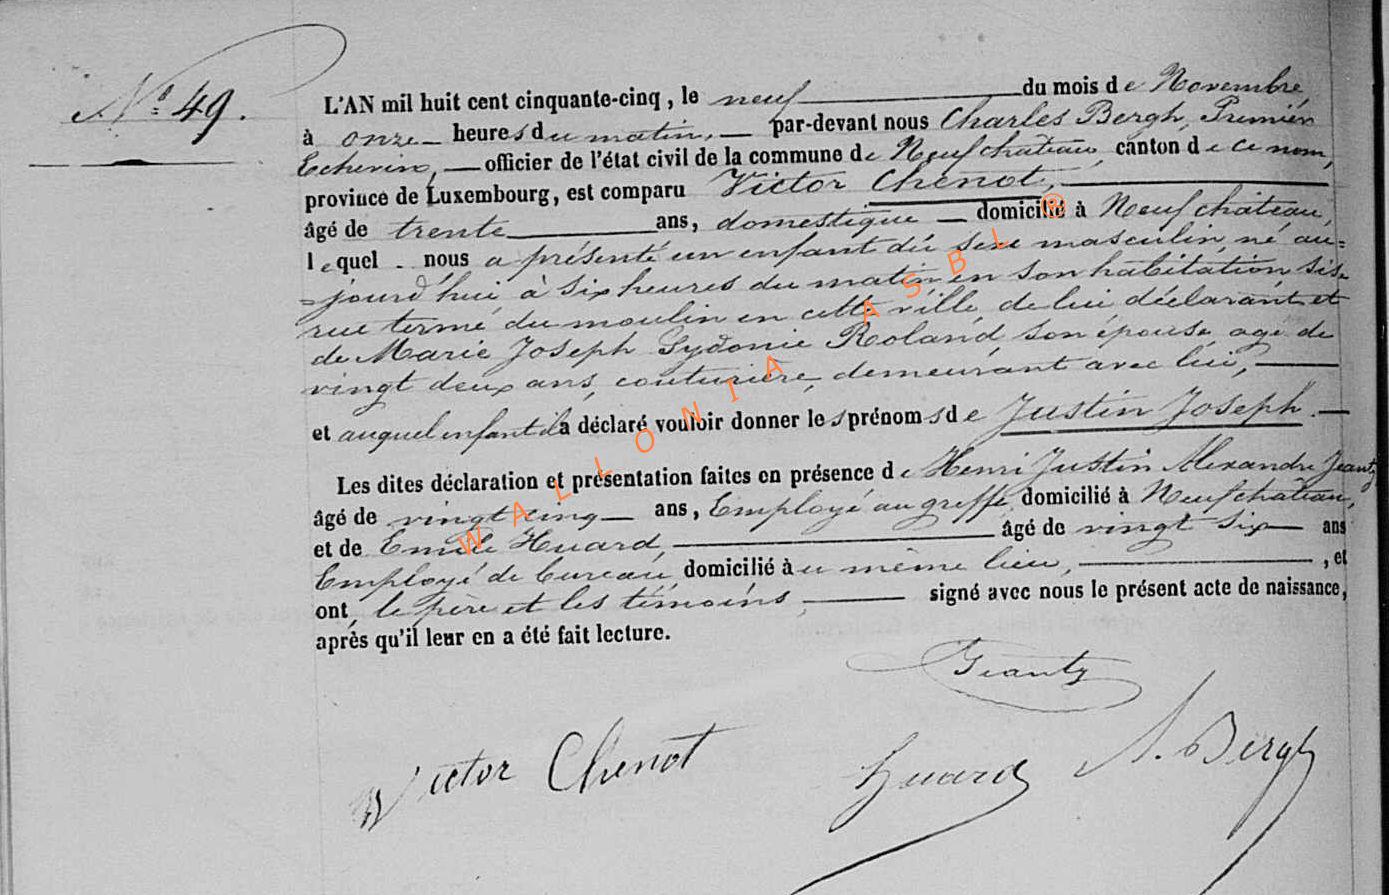 N° 49.
L'AN mil huit cent cinquante-cinq, le neuf du mois de Novembre
à onze heures du matin, par-devant nous Charles Bergh, Premier
Echevin, officier de l'état civil de la commune de Neufchâteau, canton de ce nom,
province de Luxembourg, est comparu Victor Chenot,
âgé de trente ans, domestique domicilié à Neufchâteau,
lequel nous a présenté un enfant du sexe masculin, né au=
=jourd'hui à six heures du matin en son habitation sise
rue termé du moulin en cette ville, de lui déclarant et
de Marie Joseph Sydonie Roland son épouse agé de
vingt deux ans, couturière, demeurant avec lui,
et auquel enfant il a déclaré vouloir donner les prénoms de Justin Joseph.
Les dites déclaration et présentation faites en présence de Henri Justin Alexandre Jeanty
âgé de vingt cinq ans, Employé au greffe, domicilié à Neufchâteau,
et de Emile Huard, âgé de vingt six ans
Employé de bureau, domicilié au même lieu, , et
ont, le père et les témoins, signé avec nous le présent acte de naissance,
après qu'il leur en a été fait lecture.
Jeanty
Victor Chenot
Huard
Bergh
WALLONIA ASBL ®